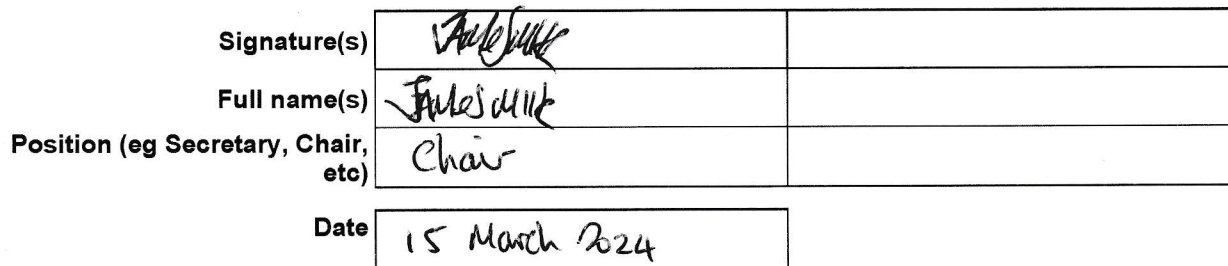 Signature(s)
Full name(s) James Milk
Position (eg Secretary, Chair,
etc) Chair
Date 15 March 2024